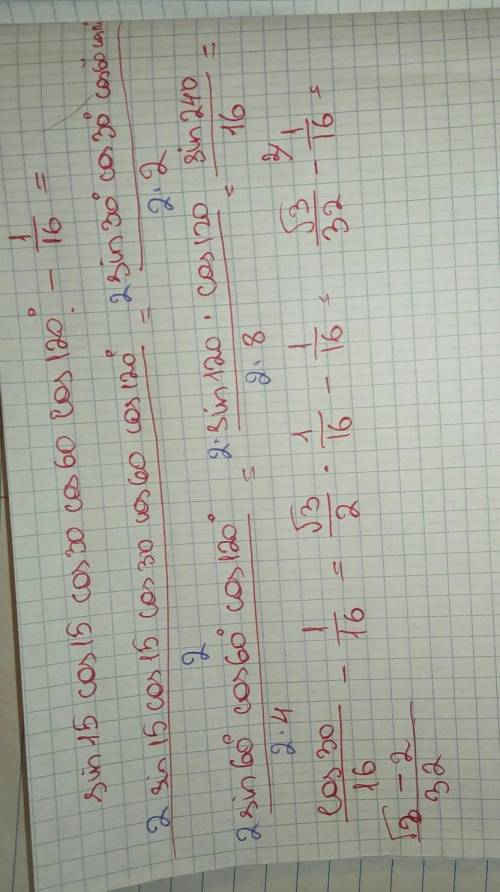 sin15 cos15 cos30 cos60 cos120° - 1/16 =
2 sin15 cos15 cos30 cos60 cos120° / 2 = 2 sin30° cos30° cos60° / 2·2
2 sin60° cos60° cos120° / 2·4 = 2·sin120·cos120 / 2·8 = sin240 / 16 =
cos30 / 16 - 1/16 = √3/2 · 1/16 - 1/16 = √3/32 - 2) 1/16 =
√3 - 2 / 32